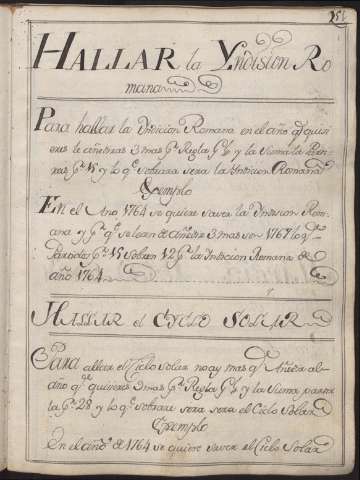 151
HALLAR la Yndision Ro
mana
Para hallar la Yndicion Romana en el año q̃ quin
eres le añetiras 3 mas Pr Regla Gl y la Suma la
Pr 15 y lo q̃ sobrara sera la Yndicion Romana
Exemplo
En el Ano 1764 se quiere saver la Yndision Rom
ana y Pr q̃ se le an de añetir 3 mas son 1767 lo q̃
Partido Pr 15 Sobran 12 Pr la Yndicion Romana de
año 1764
HALLAR el CYCLO SOLAR
Para allar el Ciclo Solar no ay mas q̃ Añetir al
año q̃ quisieres 3 mas Pr Regla Gl y la Suma
la Pr 28 y lo q̃ sobrara sera sera el Ciclo Solar
Exemplo
En el año de 1764 se quiere saver el Ciclo Solar